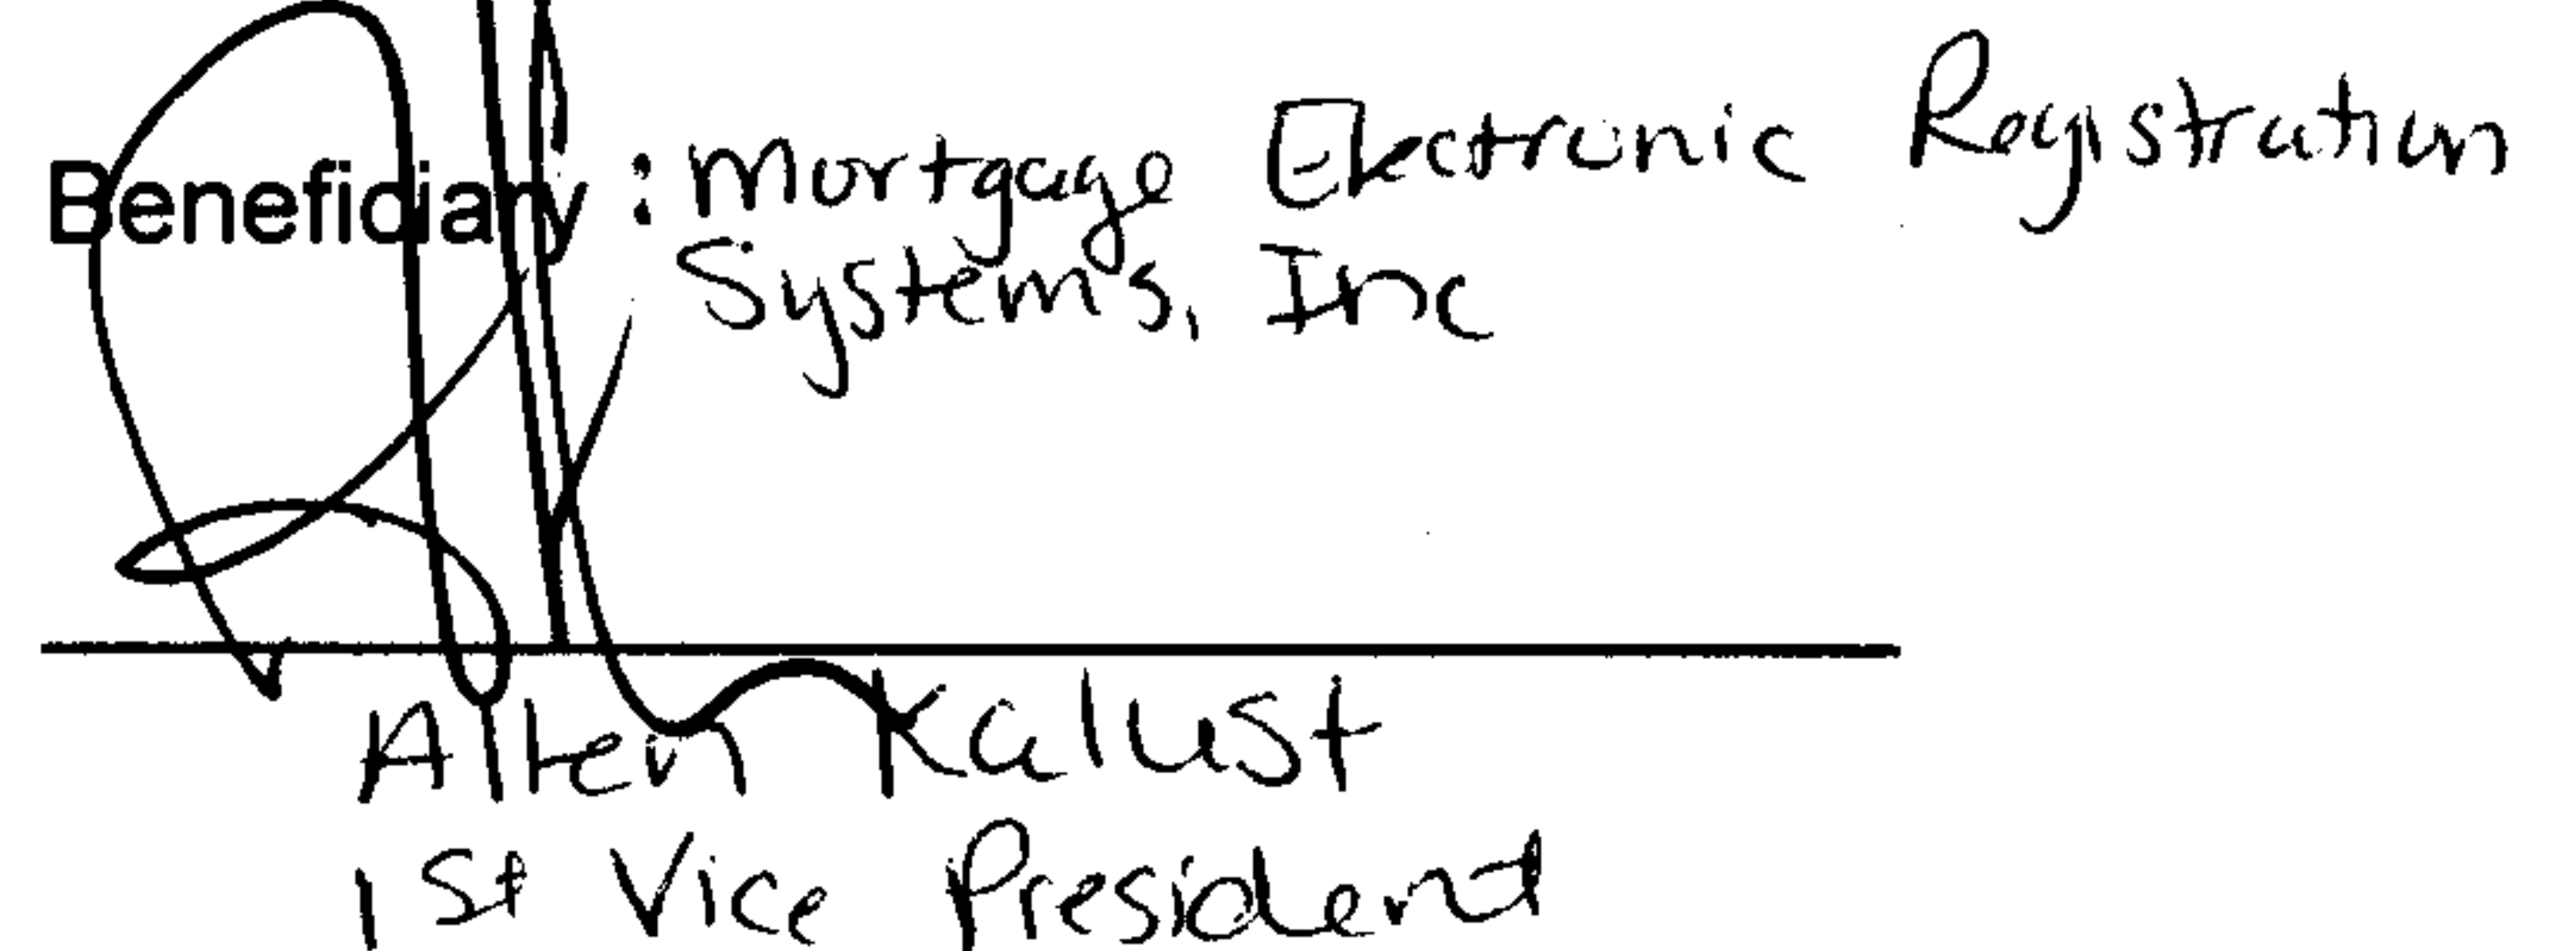 Beneficiary : Mortgage Electronic Registration
Systems, Inc
Allen Kalust
1st Vice President